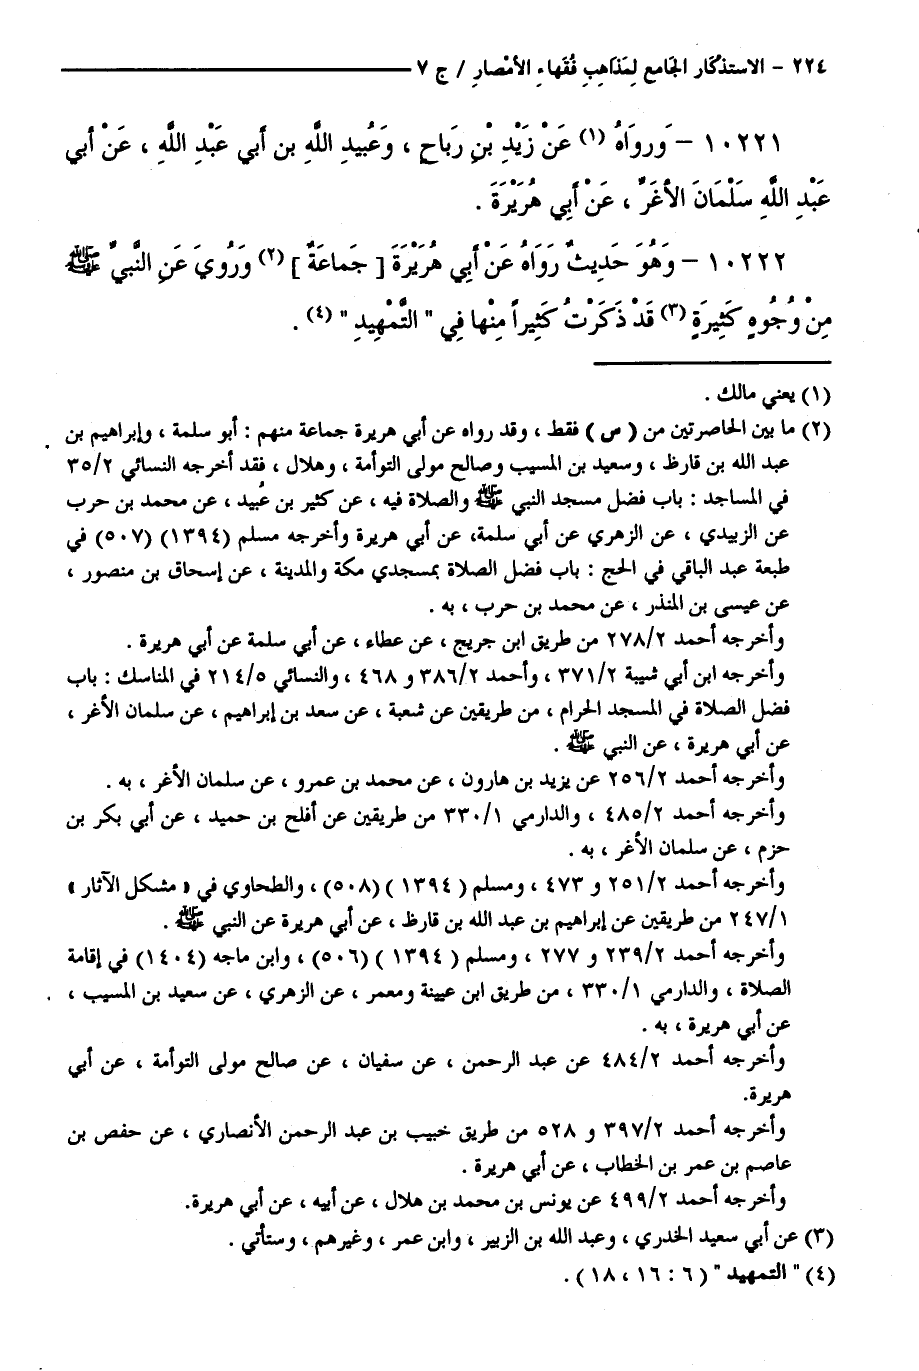 ٢٢٤ - الاستذكار الجامع لِمَذاهِبِ فُقَهاءِ الأمْصارِ / ج ٧
١٠٢٢١ - وَرَوَاهُ (١) عَنْ زَيْدِ بْنِ رَبَاحٍ ، وَعُبيدِ اللَّهِ بن أبي عَبْدِ اللَّهِ ، عَنْ أبي
عَبْدِ اللَّهِ سَلْمَانَ الأغَرِّ ، عَنْ أبِي هُرَيْرَةَ .
١٠٢٢٢ - وَهُوَ حَدِيثٌ رَوَاهُ عَنْ أبِي هُرَيْرَةَ [ جَماعَةٌ ] (٢) وَرُويَ عَنِ النَّبيِّ ﷺ
مِنْ وُجُوهٍ كَثِيرَةٍ (٣) قَدْ ذَكَرْتُ كَثِيراً مِنْها فِي " التَّمْهِيدِ " (٤) .
(١) يعني مالك .
(٢) ما بين الحاصرتين من ( ص ) فقط ، وقد رواه عن أبي هريرة جماعة منهم : أبو سلمة ، وإبراهيم بن
عبد الله بن قارظ ، وسعيد بن المسيب وصالح مولى التوأمة ، وهلال ، فقد أخرجه النسائي ٣٥/٢
في المساجد : باب فضل مسجد النبي ﷺ والصلاة فيه ، عن كثير بن عُبيد ، عن محمد بن حرب
عن الزبيدي ، عن الزهري عن أبي سلمة، عن أبي هريرة وأخرجه مسلم (١٣٩٤) (٥٠٧) في
طبعة عبد الباقي في الحج : باب فضل الصلاة بمسجدي مكة والمدينة ، عن إسحاق بن منصور ،
عن عيسى بن المنذر ، عن محمد بن حرب ، به .
وأخرجه أحمد ٢٧٨/٢ من طريق ابن جريج ، عن عطاء ، عن أبي سلمة عن أبي هريرة .
وأخرجه ابن أبي شيبة ٣٧١/٢ ، وأحمد ٣٨٦/٢ و ٤٦٨ ، والنسائي ٢١٤/٥ في المناسك : باب
فضل الصلاة في المسجد الحرام ، من طريقين عن شعبة ، عن سعد بن إبراهيم ، عن سلمان الأغر ،
عن أبي هريرة ، عن النبي ﷺ .
وأخرجه أحمد ٢٥٦/٢ عن يزيد بن هارون ، عن محمد بن عمرو ، عن سلمان الأغر ، به .
وأخرجه أحمد ٤٨٥/٢ ، والدارمي ٣٣٠/١ من طريقين عن أفلح بن حميد ، عن أبي بكر بن
حزم ، عن سلمان الأغر ، به .
وأخرجه أحمد ٢٥١/٢ و ٤٧٣ ، ومسلم ( ١٣٩٤ ) (٥٠٨) ، والطحاوي في « مشكل الآثار »
٢٤٧/١ من طريقين عن إبراهيم بن عبد الله بن قارظ ، عن أبي هريرة عن النبي ﷺ .
وأخرجه أحمد ٢٣٩/٢ و ٢٧٧ ، ومسلم ( ١٣٩٤ ) (٥٠٦) ، وابن ماجه (١٤٠٤) في إقامة
الصلاة ، والدارمي ٣٣٠/١ ، من طريق ابن عيينة ومعمر ، عن الزهري ، عن سعيد بن المسيب ،
عن أبي هريرة ، به .
وأخرجه أحمد ٤٨٤/٢ عن عبد الرحمن ، عن سفيان ، عن صالح مولى التوأمة ، عن أبي
هريرة.
وأخرجه أحمد ٣٩٧/٢ و ٥٢٨ من طريق خبيب بن عبد الرحمن الأنصاري ، عن حفص بن
عاصم بن عمر بن الخطاب ، عن أبي هريرة .
وأخرجه أحمد ٤٩٩/٢ عن يونس بن محمد بن هلال ، عن أبيه ، عن أبي هريرة.
(٣) عن أبي سعيد الخدري ، وعبد الله بن الزبير ، وابن عمر ، وغيرهم ، وستأتي .
(٤) " التمهيد " ( ٦ : ١٦ ، ١٨ ) .